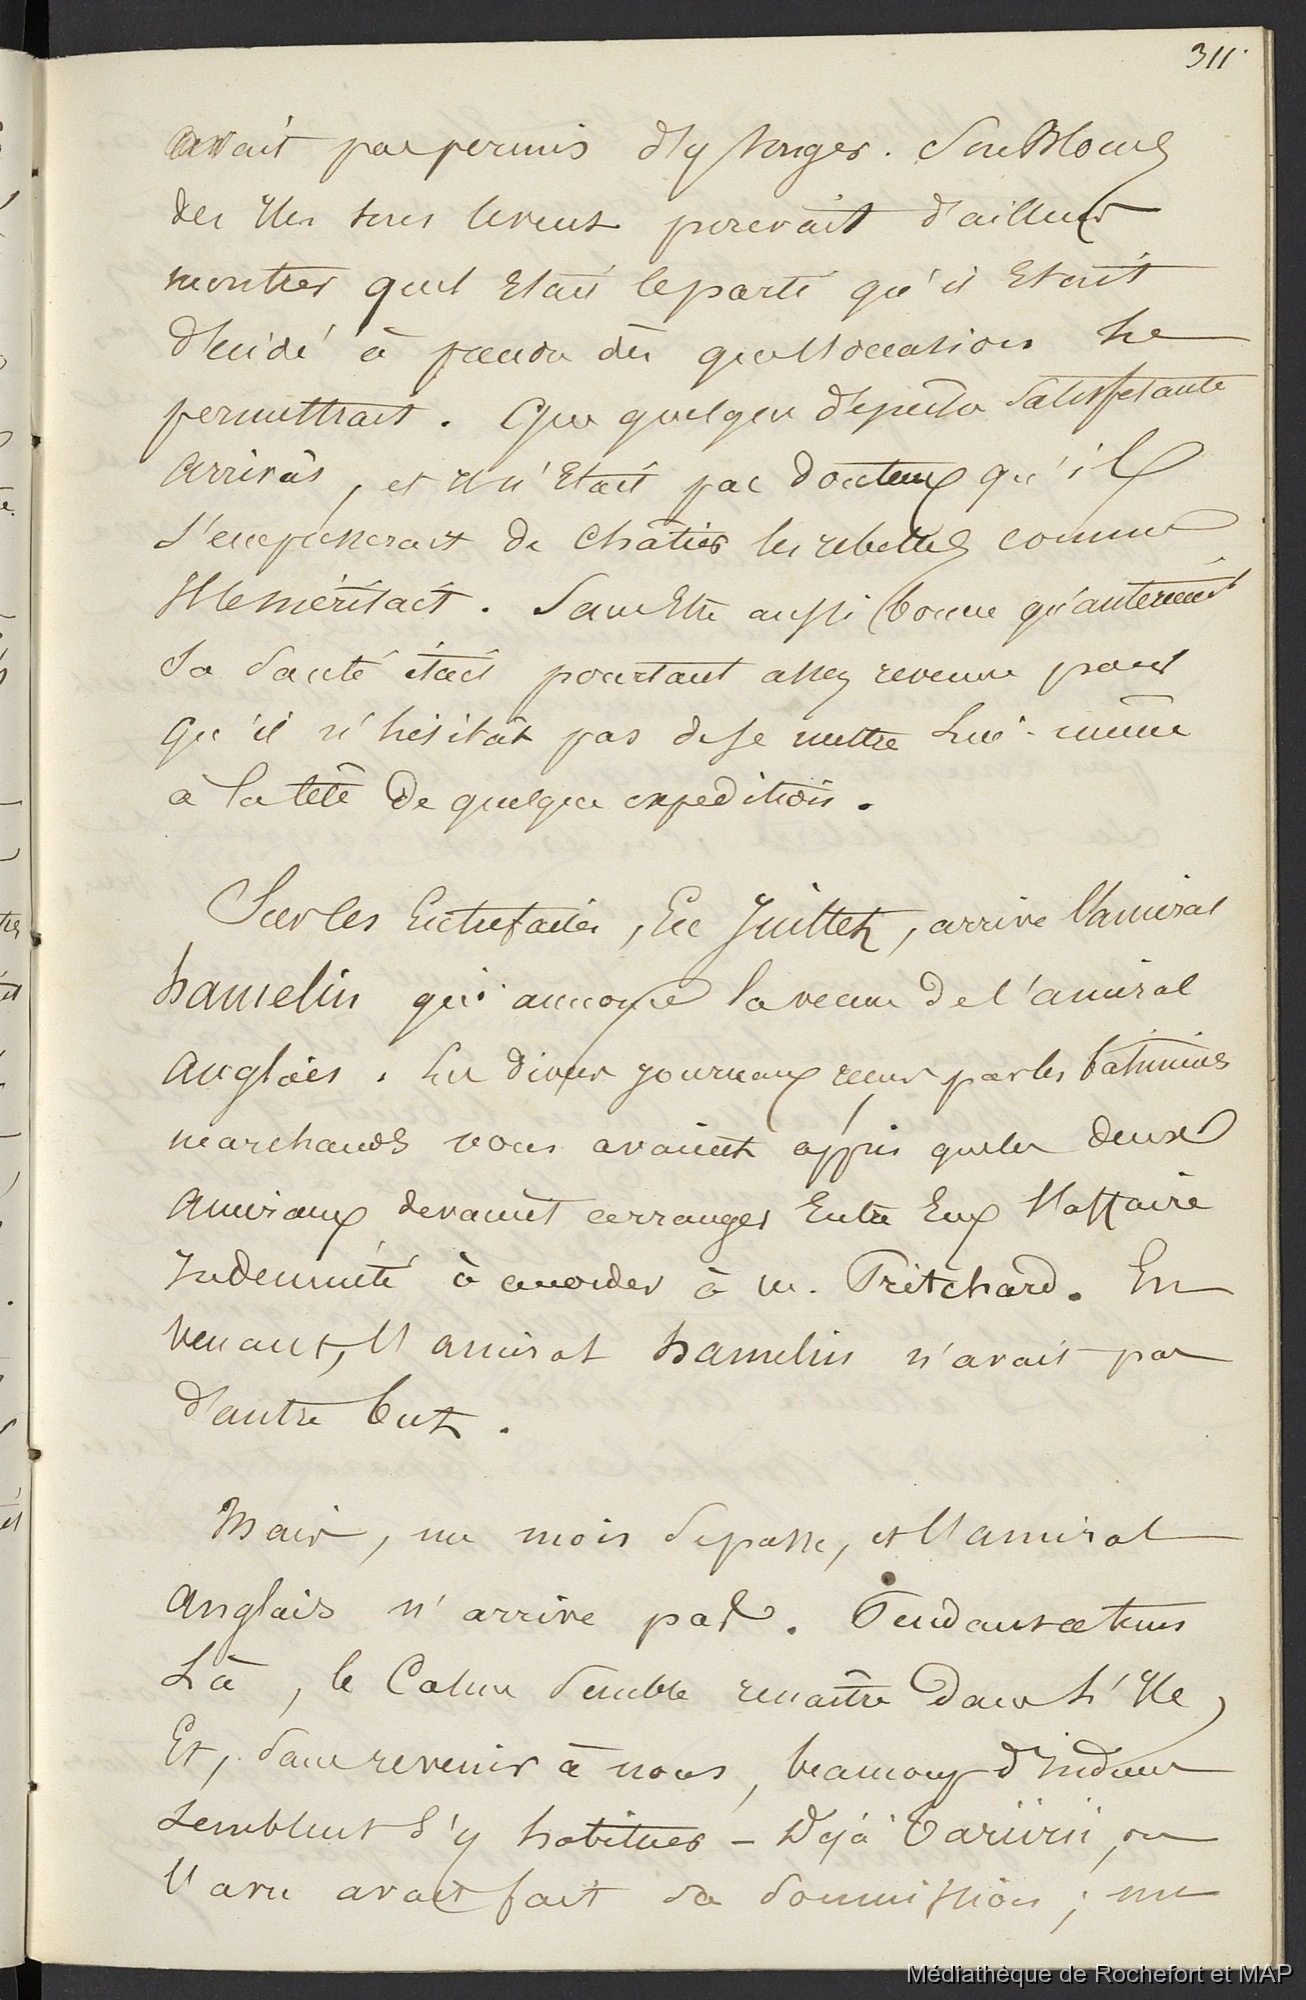 311.
avait pas permis d'y songer. Son Blocus
des Iles sous levent pouvait d'ailleurs
montrer quel Etait le parti qu'il Etait
décidé à prendre dès que l'occasion le
permettrait. Que quelque dépêche satisfesante
arrivâs, et il n'Etait pas douteux qu'il
s'empresserait de châtier les rebelles comme
Ils le méritait. Sans Etre aussi bonne qu'antérieurt
Sa santé était pourtant assez revenue pour
qu'il n'hésitât pas de se mettre Lui-même
à la tête de quelque expédition.
Sur les Entrefaites, En Juillet, arrive l'amiral
hamelin qui annonce la venue de l'amiral
anglais. Les divers journaux reçus par les bâtimens
marchands nous avaient appris que les deux
amiraux devaient arranger Entre Eux l'affaire
Indemnité à accorder à m. Pritchard. En
venant, l'amiral hamelin n'avait pas
d'autre but.
Mais, un mois se passe, et l'amiral
anglais n'arrive pas. Pendant ce tems
Là, le Calme semble renaître dans L'Ile,
Et, sans revenir à nous, beaucoup d'Indiens
semblent s'y habituer – Déjà Tariirii, on
l'a vu avait fait sa soumission; un
Médiathèque de Rochefort et MAP